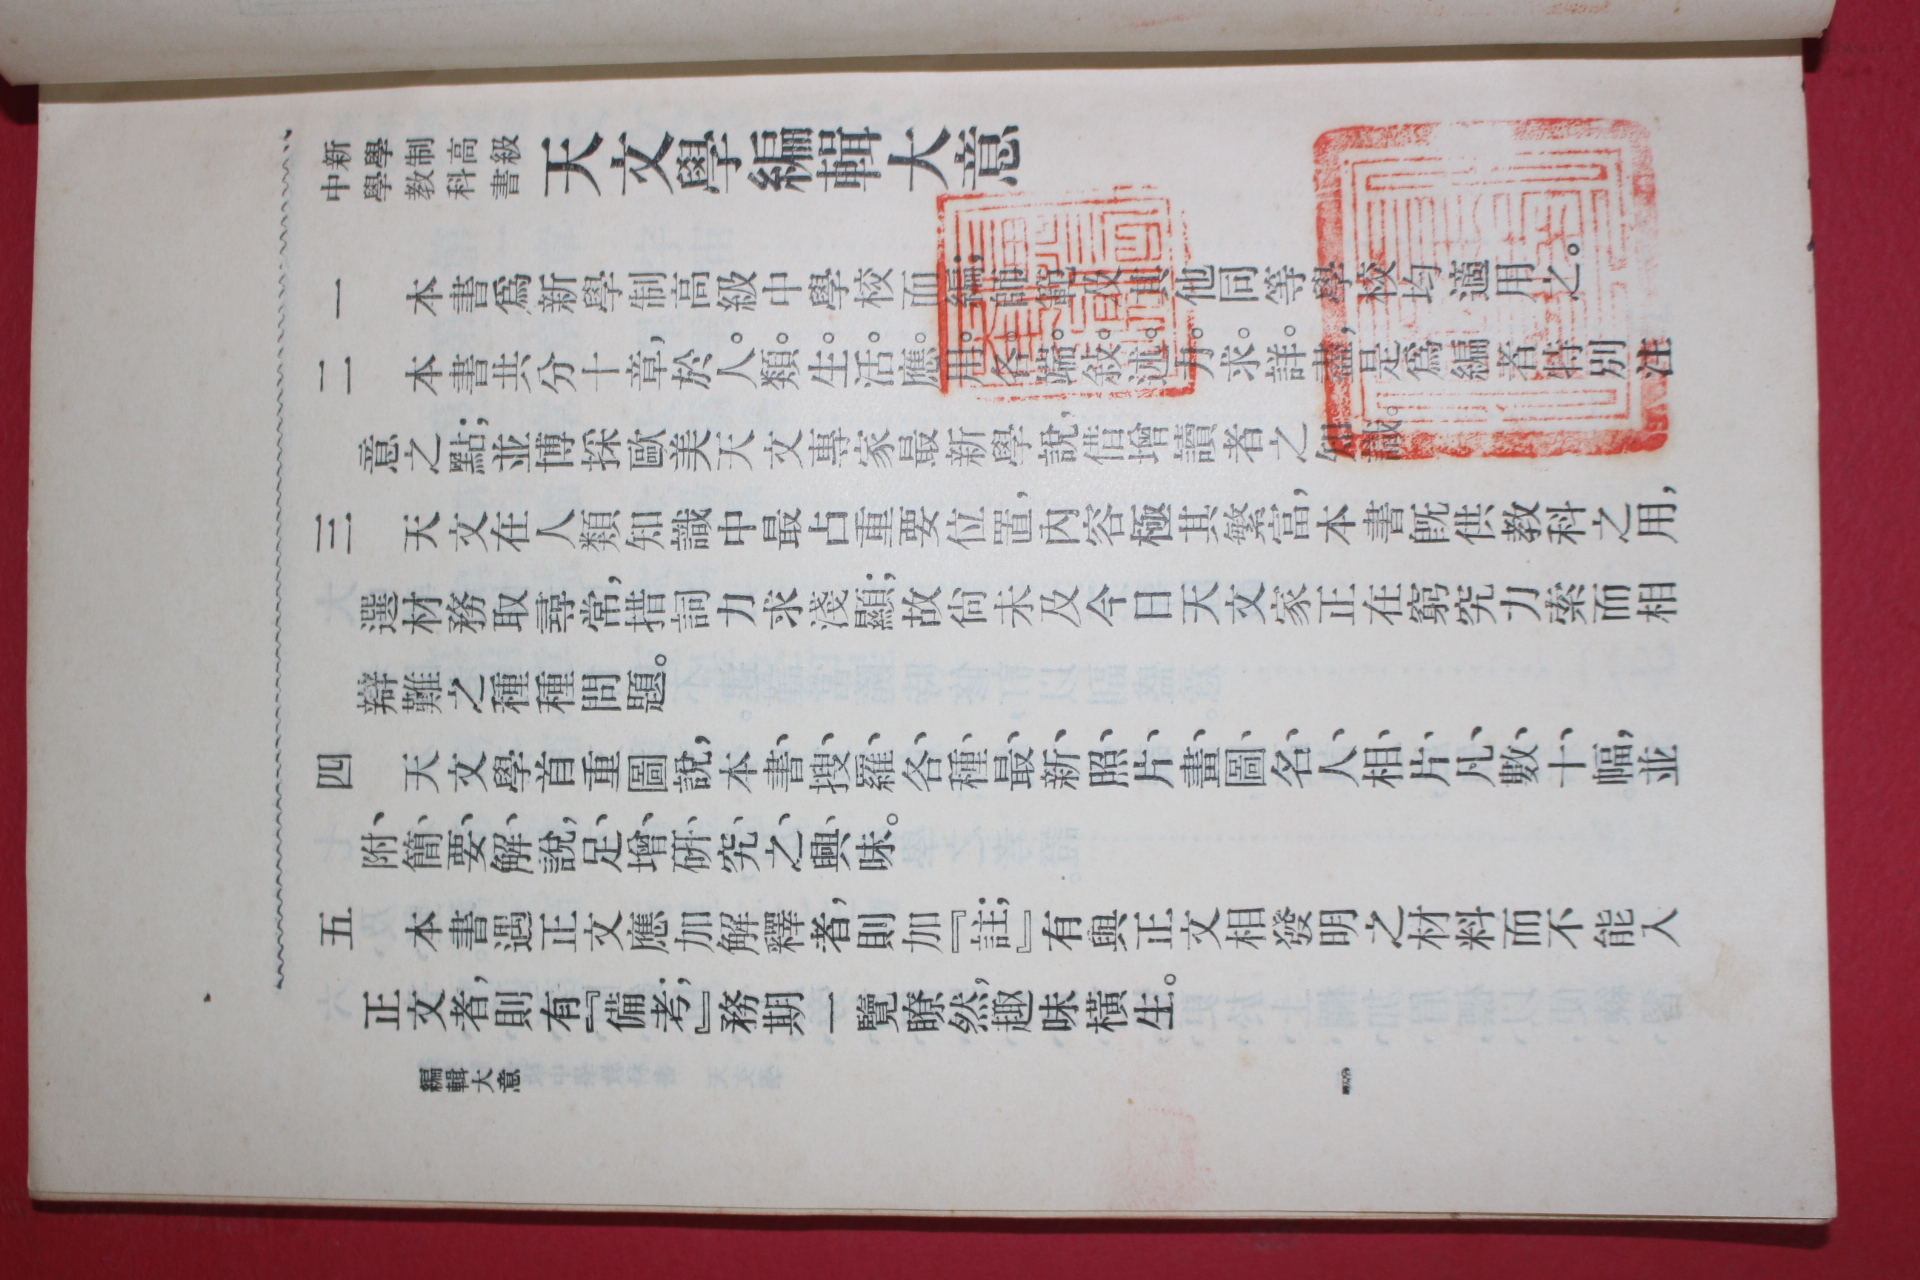 新學制高級
中學教科書
天文學編輯大意
一　本書爲新學制高級中學校而編；師範及其他同等學校均適用之。
二　本書共分十章，於人類生活應用各端敍述力求詳盡，是爲編者特別注
意之點；並博採歐美天文專家最新學說，借增讀者之知識。
三　天文在人類知識中最占重要位置，內容極其繁富，本書旣供教科之用，
選材務取尋常，措詞力求淺顯；故尙未及今日天文家正在窮究力索而相
辯難之種種問題。
四　天文學首重圖說，本書搜羅各種最新照片畫圖名人相片凡數十幅，並
附簡要解說，足增研究之興味。
五　本書遇正文應加解釋者，則加『註』；有與正文相發明之材料而不能入
正文者，則有『備考』；務期一覽瞭然，趣味橫生。
編輯大意
一